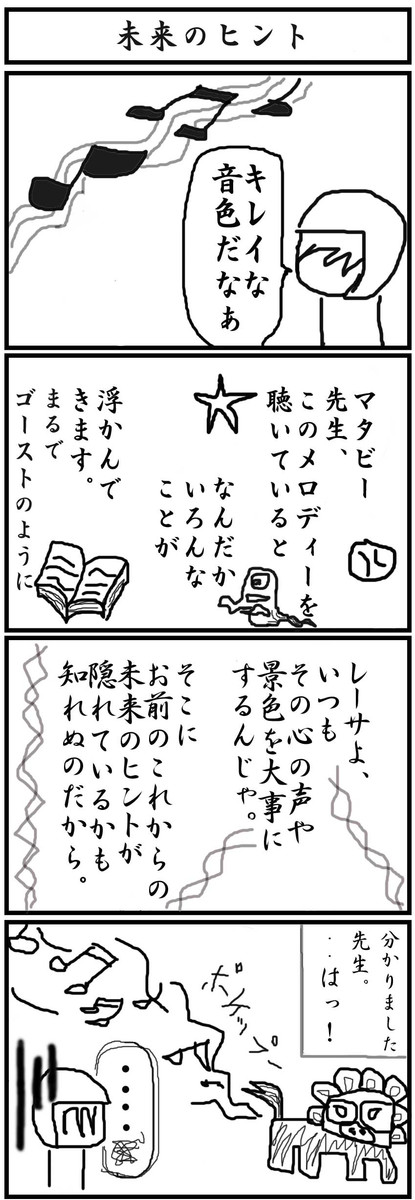 未来のヒント
キレイな
音色だなぁ
マタビー
先生、
このメロディーを
聴いていると
なんだか
いろんな
ことが
浮かんで
きます。
まるで
ゴーストのように
レーサよ、
いつも
その心の声や
景色を大事に
するんじゃ。
そこに
お前のこれからの
未来のヒントが
隠れているかも
知れぬのだから。
分かりました
先生。
・・はっ!
・・・・